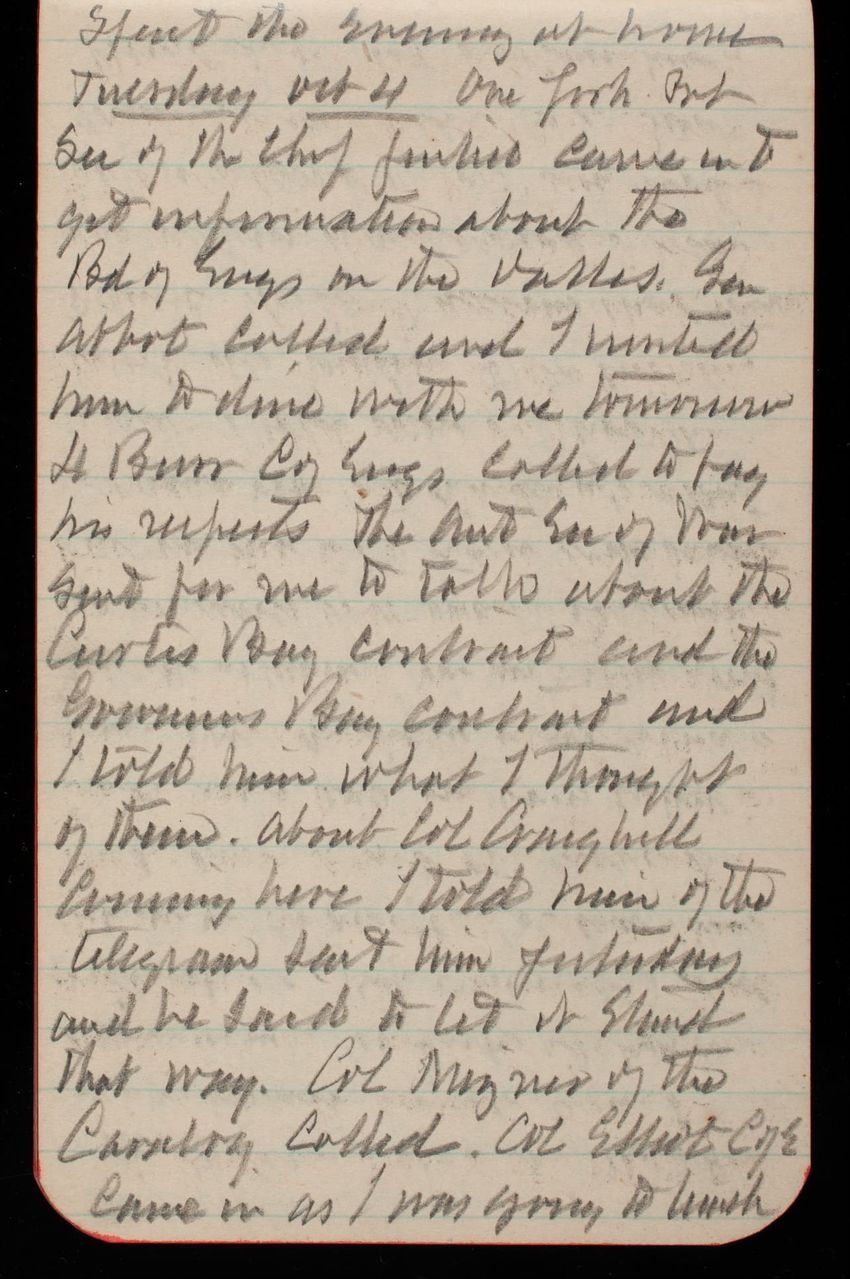 Spent the evening at home
Tuesday Oct 4 One York Prt
Sec of the Chf Justice came in to
get information about the
Bd of Engs on the Dalles. Gen
Abbot called and I invited
him to dine with me tomorrow
Lt Burr C of Engs called to pay
his respects The Asst Sec of War
Sent for me to talk about the
Curtis Bay contract and the
Gowanus Bay contract and
I told him what I thought
of them. About Col Craighill
coming here I told him of the
telegram sent him yesterday
and he said to let it stand
that way. Col Mizner of the
Cavalry called. Col Elliot C of E
came in as I was going to lunch